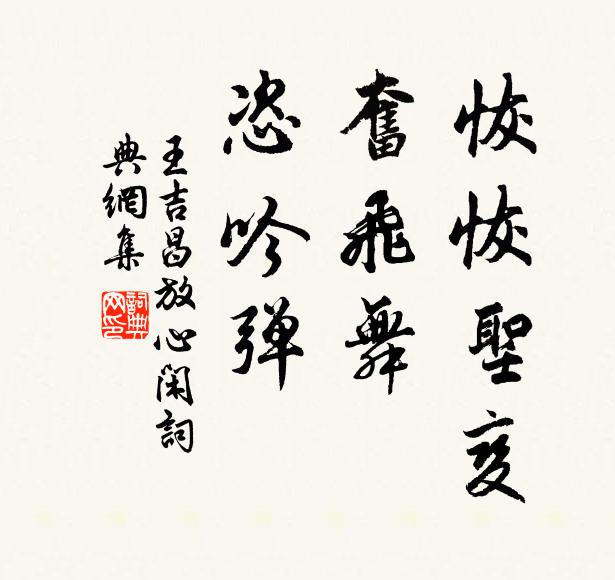 恢恢聖变
奮飛舞
恣吟弹
王吉昌放心閑詞
典網集
詞典
网印